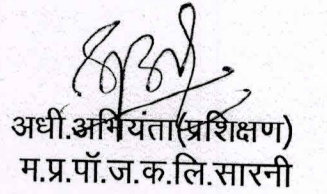 अधी.अभियंता(प्रशिक्षण)
म.प्र.पॉ.ज.क.लि.सारनी